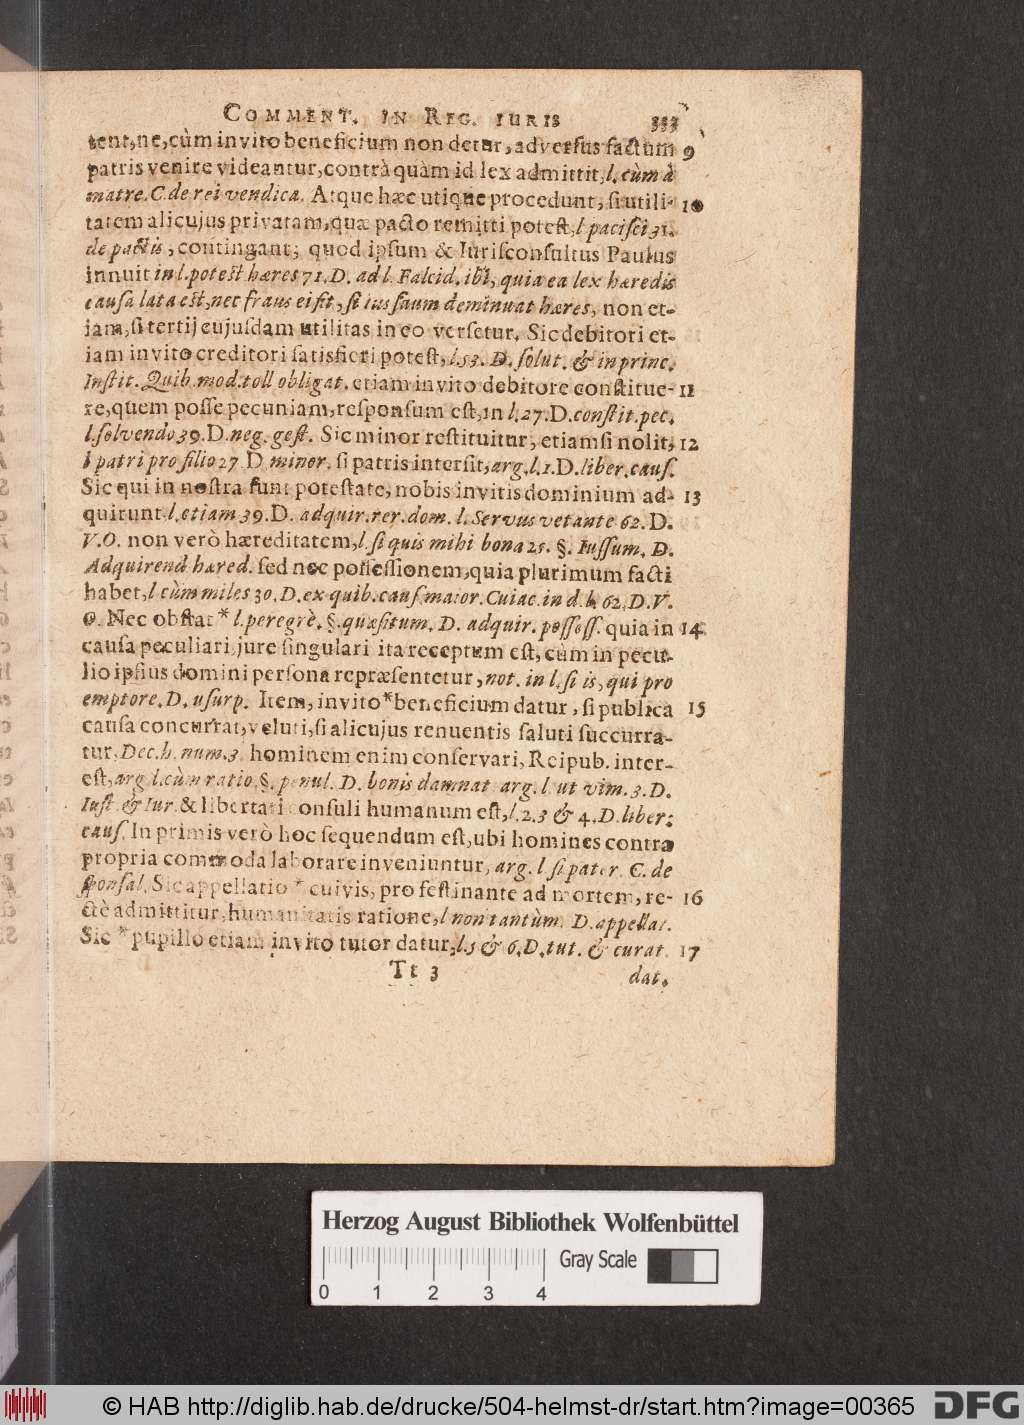 COMMENT. IN REG. IURIS 333
tent, ne, cùm invito beneficium non detur, adversus factum 9
patris venire videantur, contrà quàm id lex admittit, l. cùm à
matre. C. de rei vendica. Atque hæc utique procedunt, si utili- 10
tatem alicujus privatam, quæ pacto remitti potest, l pacisci 31.
de pactis, contingant; quod ipsum & Iurisconsultus Paulus
innuit in l. potest hæres 71. D. ad l. Falcid. ibi, quia ea lex hæredis
causa lata est, nec fraus ei fit, si ius suum deminuat hæres, non et-
jam, si tertij cujusdam utilitas in eo versetur. Sic debitori et-
iam invito creditori satisfieri potest, l. 53. D. solut. & in princ.
Instit. Quib. mod. toll obligat. etiam invito debitore constitue- 11
re, quem posse pecuniam, responsum est, in l. 27. D. constit. pec.
l. solvendo 39. D. neg. gest. Sic minor restituitur, etiamsi nolit, 12
l patri pro filio 27 D minor. si patris intersit, arg. l. 1. D. liber. caus.
Sic qui in nostra sunt potestate, nobis invitis dominium ad- 13
quirunt l. etiam 39. D. adquir. rer. dom. l. Servus vetante 62. D.
V. O. non verò hæreditatem, l. si quis mihi bona 25. §. Iussum. D.
Adquirend hæred. sed nec possessionem, quia plurimum facti
habet, l cùm miles 30. D. ex quib. caus. maior. Cuiac. in d. l. 62. D. V.
O. Nec obstat * l. peregrè. §. quæsitum. D. adquir. possess. quia in 14
causa peculiari, jure singulari ita receptum est, cùm in pecu-
lio ipsius domini persona repræsentetur, not. in l. si is, qui pro
emptore. D. usurp. Item, invito * beneficium datur, si publica 15
causa concurrat, veluti, si alicujus renuentis saluti succurra-
tur, Dec. h. num. 3. hominem enim conservari, Reipub. inter-
est, arg. l. cùm ratio, §. penul. D. bonis damnat arg. l. ut vim. 3. D.
Iust. & Iur. & libertati consuli humanum est, l. 2. 3 & 4. D. liber:
caus. In primis verò hoc sequendum est, ubi homines contra
propria commoda laborare inveniuntur, arg. l. si pater. C. de
sponsal. Sic appellatio * cuivis, pro festinante ad mortem, re- 16
ctè admittitur, humanitatis ratione, l non tantùm. D. appellat.
Sic * pupillo etiam invito tutor datur, l. 5 & 6. D. tut. & curat. 17
Tt 3 dat.
Herzog August Bibliothek Wolfenbüttel
Gray Scale
0 1 2 3 4
© HAB http://diglib.hab.de/drucke/504-helmst-dr/start.htm?image=00365 DFG